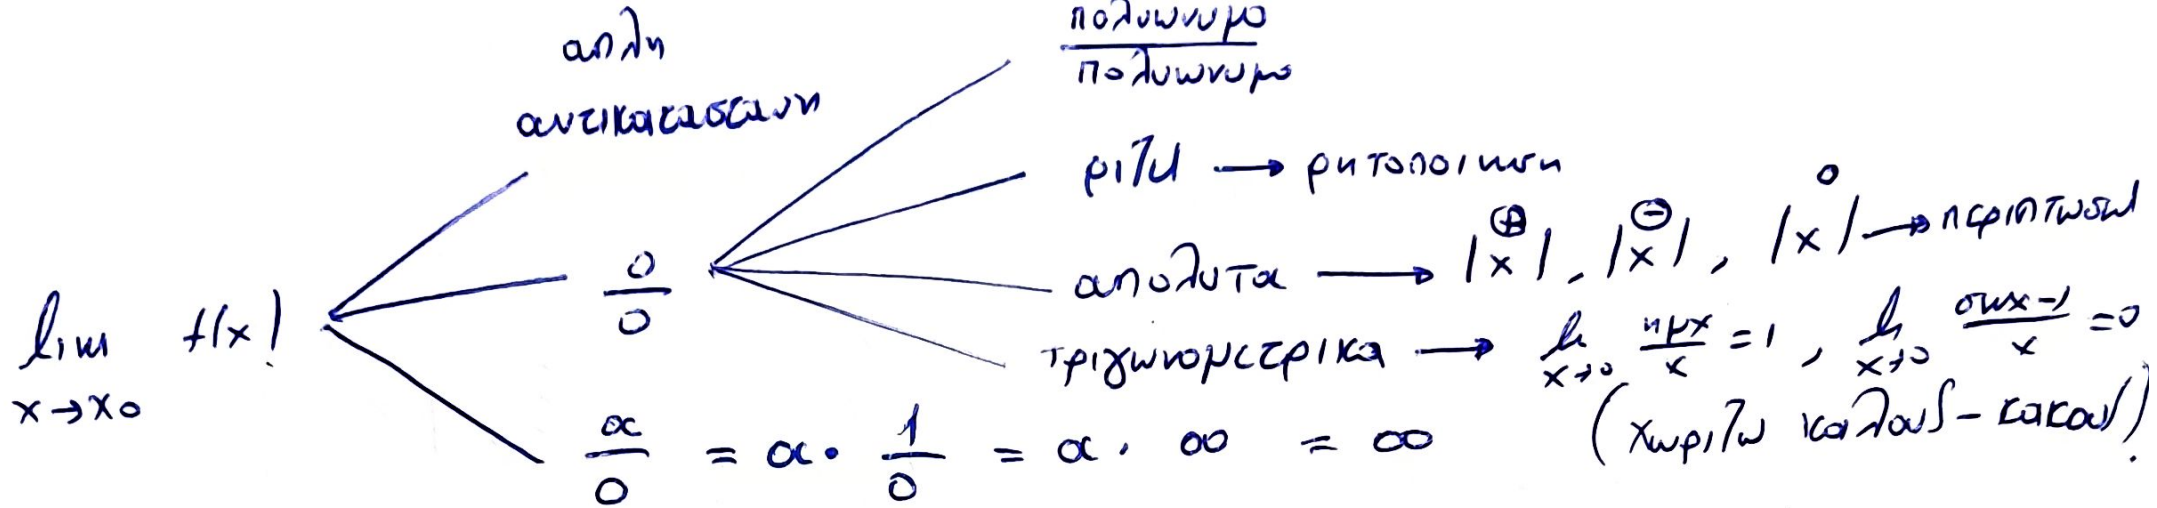 απλη
αντικατασταση
πολυωνυμο
πολυωνυμο
ριζες → ρητοποιηση
lim f(x)
x→x₀
0/0
απολυτα → |x| ⊕, |x| ⊖, |x| 0 → περιπτωσεις
τριγωνομετρικα → lim x→0 ημx/x = 1, lim x→0 συνx-1/x = 0
(χωριζω καλους - κακους)
α/0 = α · 1/0 = α · ∞ = ∞